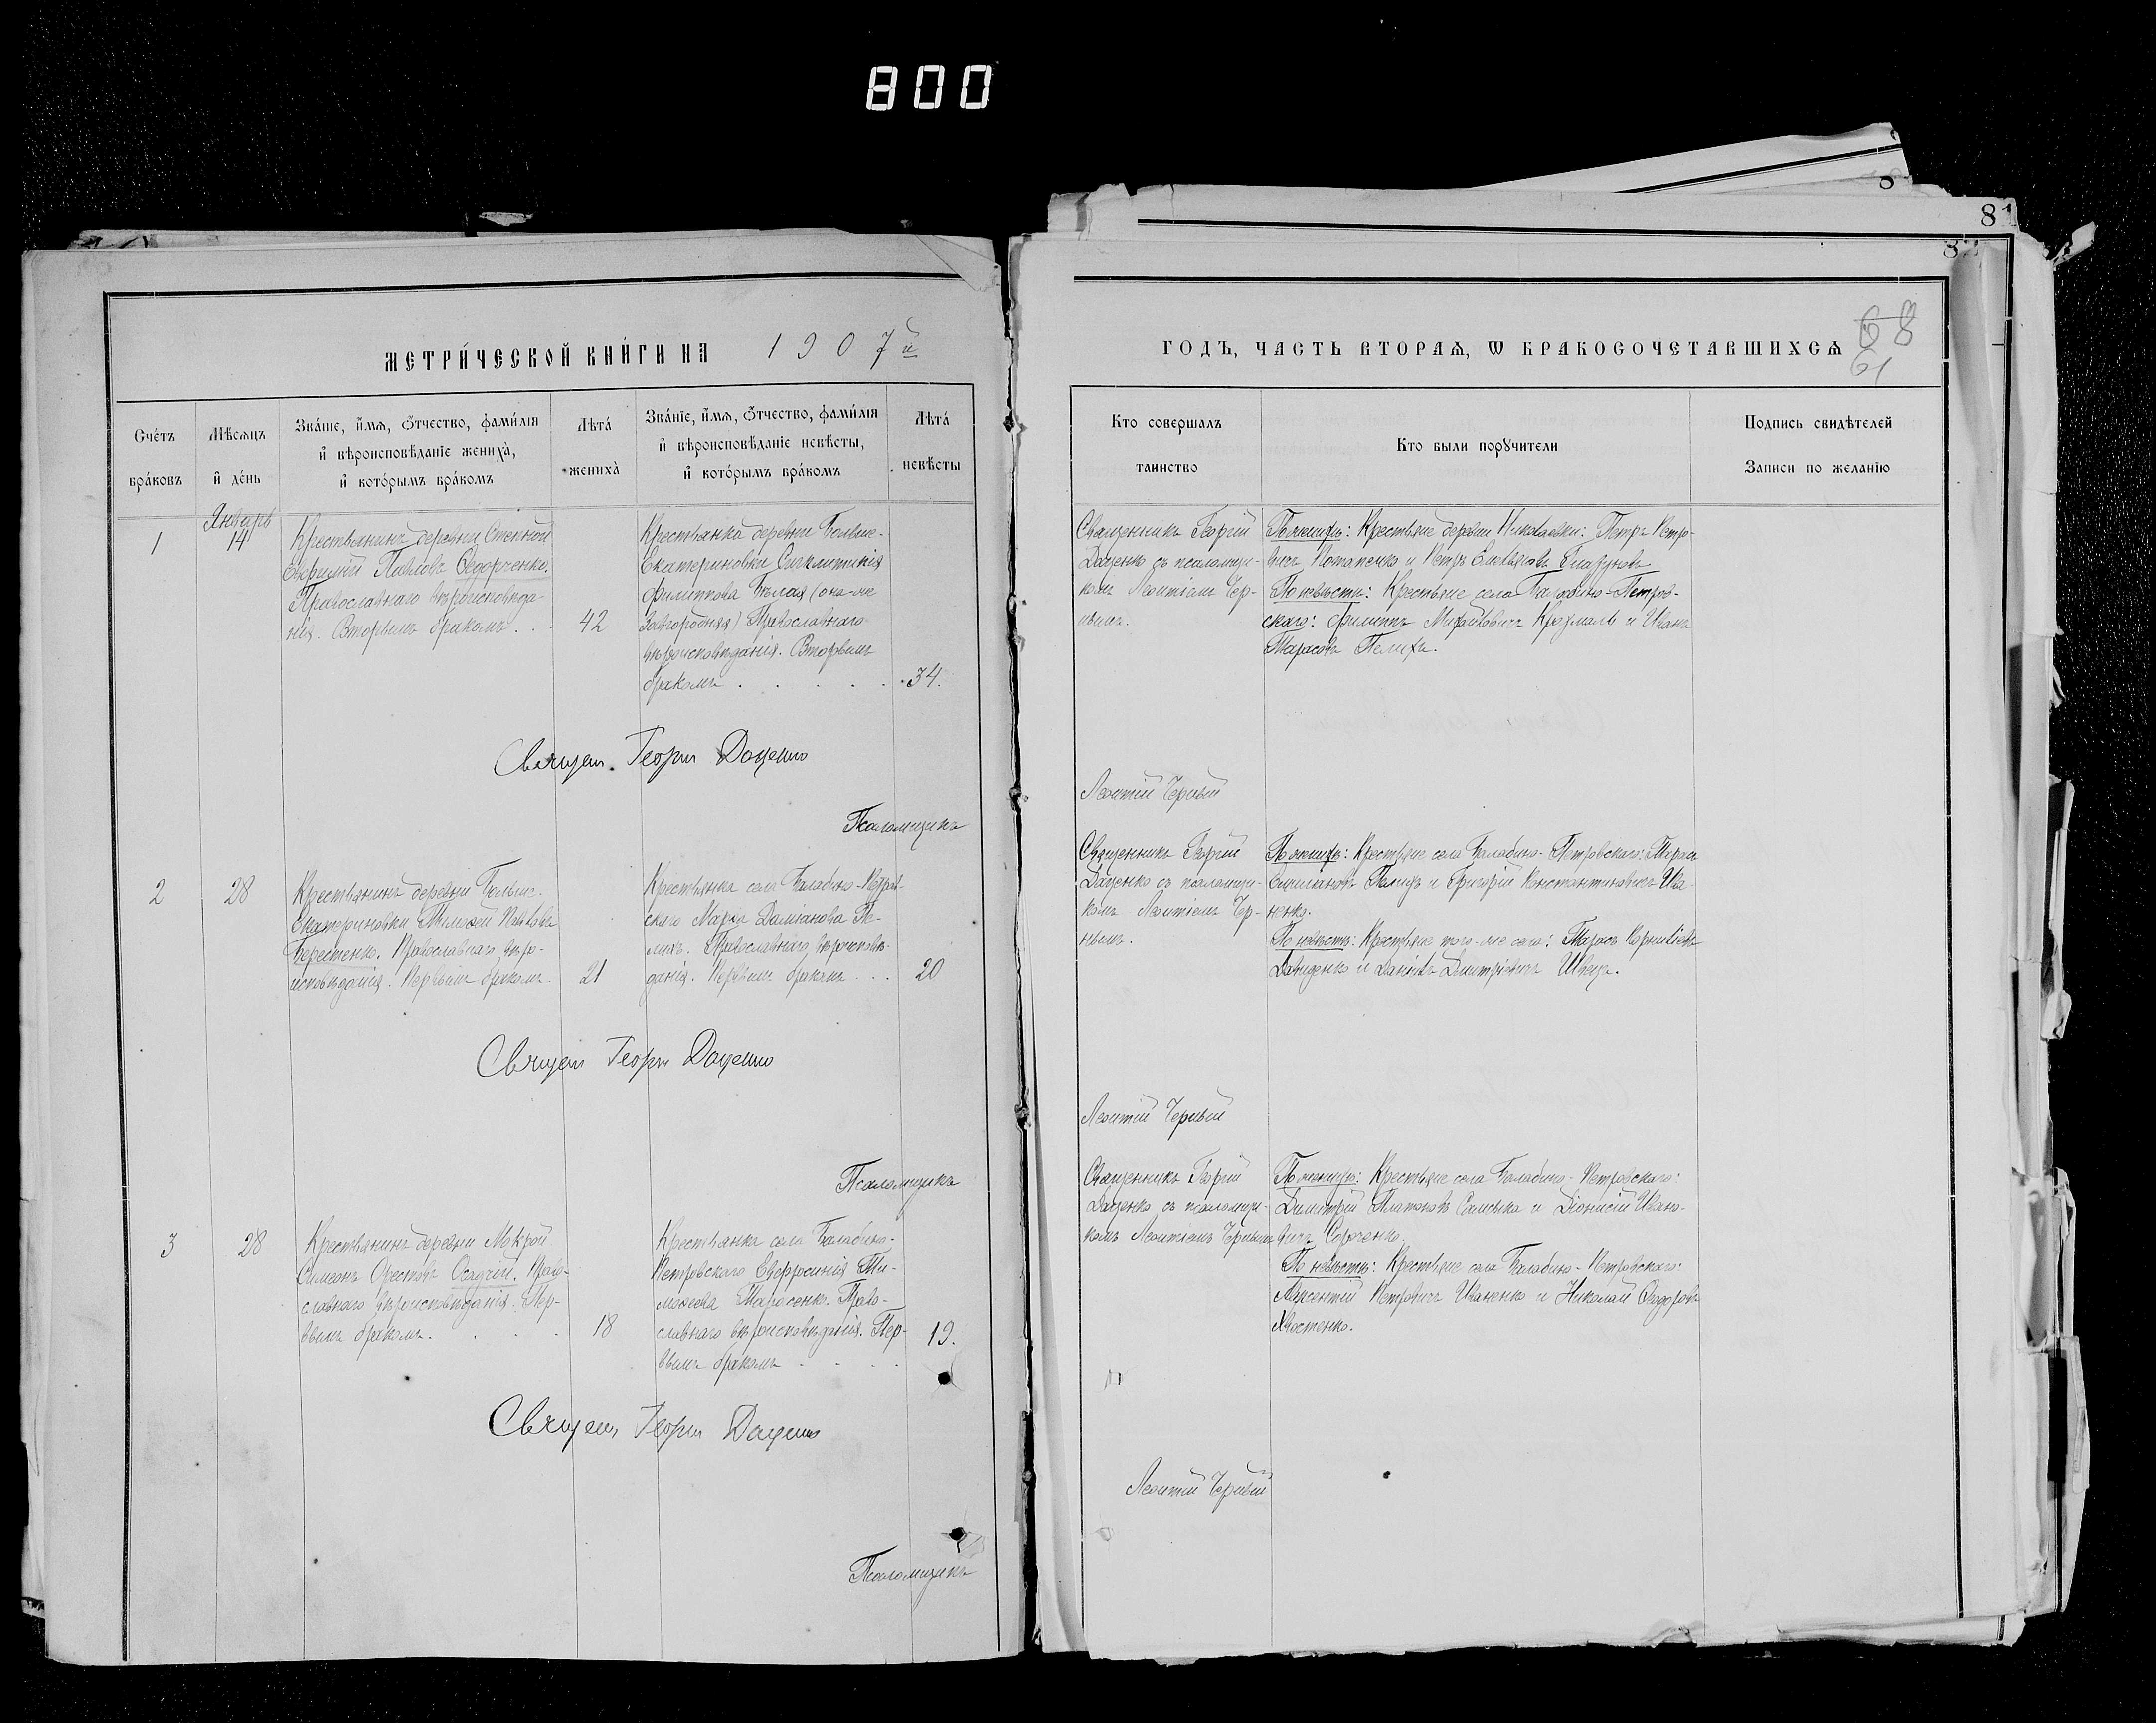 800
81
МЕТРИ́ЧЕСКОЙ КНИ́ГИ НА 1907й
Сче́тъ бра́ковъ
Мѣсяцъ и де́нь
Зва́нїе, и́мѧ, ѻ҆́тчество, фами́лїѧ
и҆ вѣроисповѣ́данїе жениха̀,
и҆ кото́рымъ бра́комъ
Лѣта́ жениха̀
Зва́нїе, и́мѧ, ѻ҆́тчество, фами́лїѧ
и҆ вѣроисповѣ́данїе невѣ́сты,
и҆ кото́рымъ бра́комъ
Лѣта́ невѣ́сты
1
Январь
14
Крестьянинъ деревни Степной
Евфимій Павловъ Сидорченко.
Православнаго вѣроисповѣда-
нія. Вторымъ бракомъ.
42
Крестьянка деревни Больше-
Екатериновки Синклитикія
Филиппова Бѣлая (она-же
Загородняя) Православнаго
вѣроисповѣданія. Вторымъ
бракомъ
34.
Священ. Георгій Доценко
Псаломщикъ
2
28
Крестьянинъ деревни Больше-
Екатериновки Тимоѳей Павловъ
Берестенко. Православнаго вѣро-
исповѣданія. Первымъ бракомъ.
21
Крестьянка села Балабино-Петров-
скаго Марѳа Даміанова Пе-
лихъ. Православнаго вѣроисповѣ-
данія. Первымъ бракомъ
20
Священ Георгій Доценко
Псаломщикъ
3
28
Крестьянинъ деревни Мокрой
Симеонъ Орестовъ Осадчій. Право-
славнаго вѣроисповѣданія. Пер-
вымъ бракомъ.
18
Крестьянка села Балабино-
Петровскаго Евфросинія Ти-
моѳеева Тарасенко. Право-
славнаго вѣроисповѣданія. Пер-
вымъ бракомъ
19.
Священ. Георгій Доценко
Псаломщикъ
ГОДЪ, ЧАСТЬ ВТОРАѦ, Ѡ БРАКОСОЧЕТАВШИХСѦ
68
61
Кто совершалъ
таинство
Кто были порꙋчители
Подпись свидѣтелей
Записи по желанію
Священникъ Георгій
Доценко съ псаломщи-
комъ Леонтіемъ Чер-
нымъ.
По женихѣ: Крестьяне деревни Николаевки: Петръ Петро-
вичъ Потапенко и Петръ Емельяновъ Глазуновъ
По невѣстѣ: Крестьяне села Балабино-Петров-
скаго: Филиппъ Михайловичъ Крохмаль и Иванъ
Тарасовъ Пелихъ.
Леонтій Черный
Священникъ Георгій
Доценко съ псаломщи-
комъ Леонтіемъ Чер-
нымъ.
По женихѣ: Крестьяне села Балабино-Петровскаго: Тарасъ
Пелихъ и Григорій Константиновичъ Ива-
ненко.
По невѣстѣ: Крестьяне того-же села: Тарасъ Корниліевъ
Давиденко и Даніилъ Димитріевичъ Швецъ.
Леонтій Черный
Священникъ Георгій
Доценко съ псаломщи-
комъ Леонтіемъ Чернымъ
По женихѣ: Крестьяне села Балабино-Петровскаго:
Димитрій Платоновъ Самсыка и Діонисій Ивано-
вичъ Сорченко.
По невѣстѣ: Крестьяне села Балабино-Петровскаго:
Авксентій Петровичъ Иваненко и Николай Ѳеодоровъ
Хвостенко.
Леонтій Черный